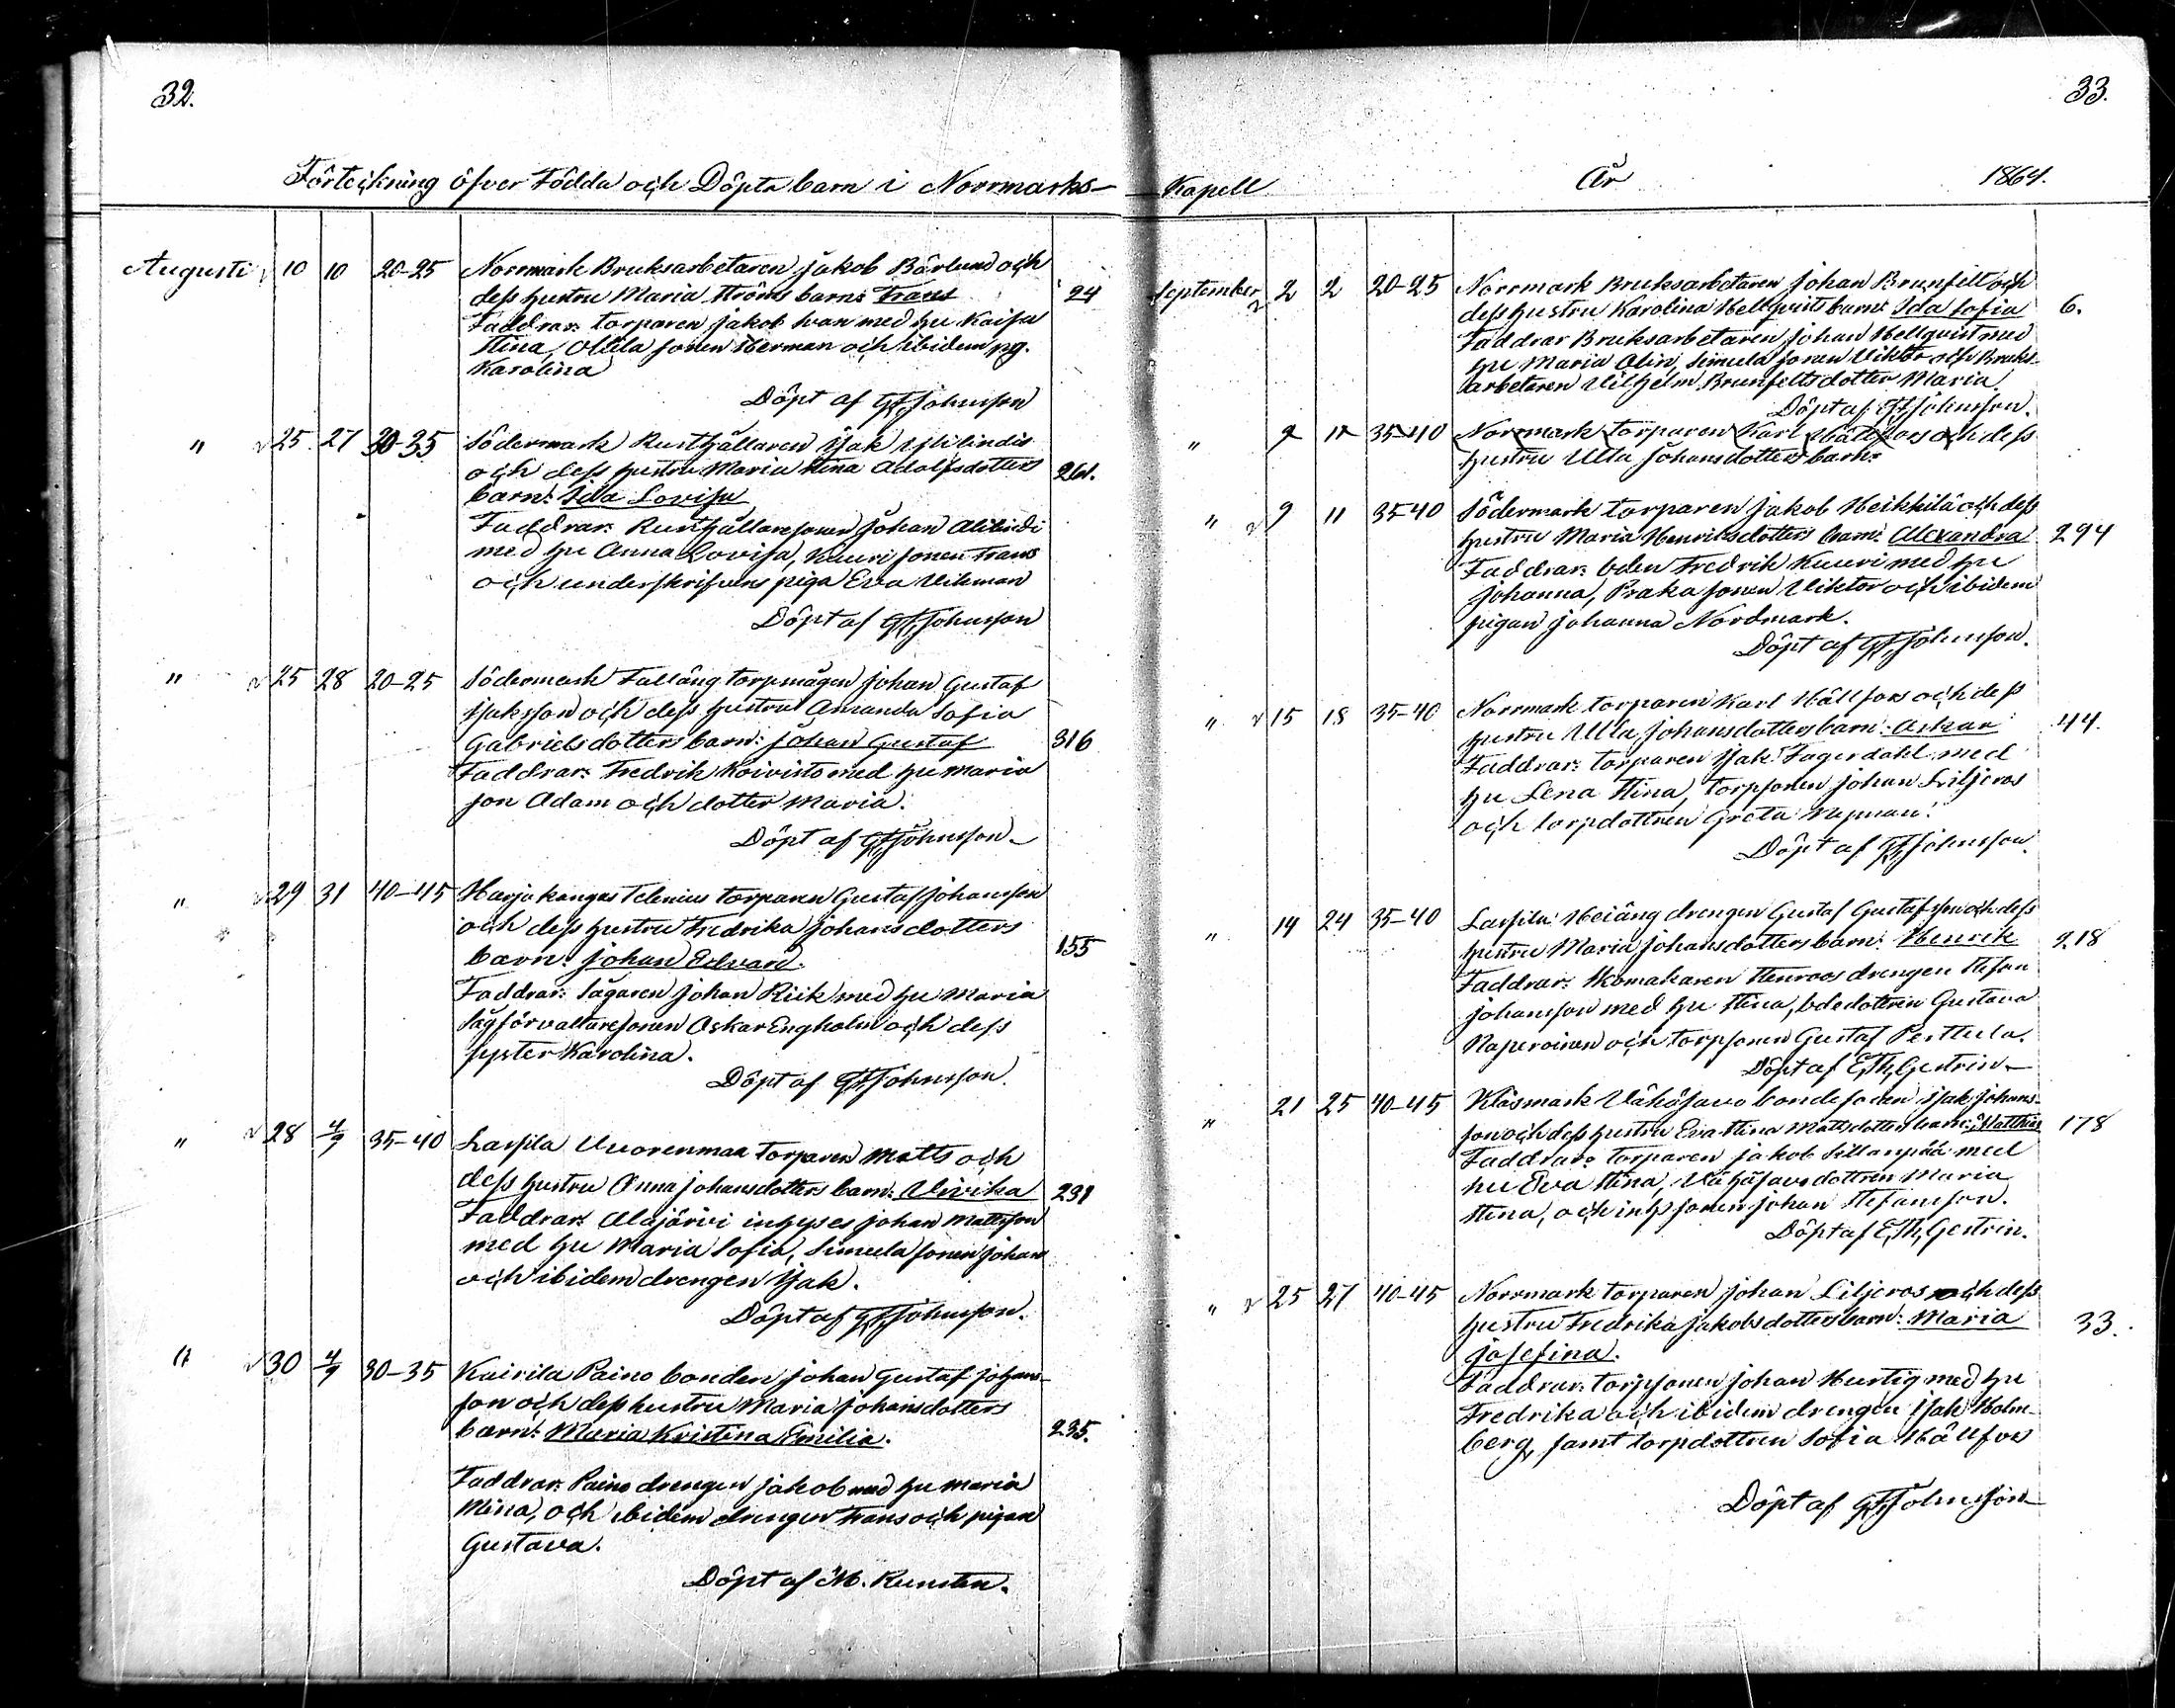 32.
Förteckning öfver Födda och Döpta barn i Norrmarks-
Augusti 10 10 20-25 Norrmark Bruksarbetaren Jakob Bärlund och
dess hustru Maria Ströms barn: Frans 24
Faddrar: torparen Jakob Svan med hu Kaisa
Stina, Ollila sonen Herman och ibidem pg.
Karolina
Döpt af GF Johnsson
" 25 27 30-35 Södermark Rusthållaren Isak
och dess hustru Maria Stina Adolfsdotters 261.
barn: Ida Lovisa
Faddrar: Rusthållaresonen Johan
med hu Anna Lovisa, Kuuri sonen Frans
och underskrifvens piga Eva Vikman
Döpt af GF Johnsson
" 25 28 20-25 Södermark Falläng torpmågen Johan Gustaf
Isaksson och dess hustru Amanda Sofia
Gabrielsdotters barn: Johan Gustaf 316
Faddrar: Fredrik Koivisto med hu Maria
son Adam och dotter Maria.
Döpt af GF Johnsson
" 29 31 40-45 Harjakangas Telenius torparen Gustaf Johansson
och dess hustru Fredrika Johansdotters
barn: Johan Edvard. 155
Faddrar: Sågaren Johan Riik med hu Maria
Sågförvaltaresonen Oskar Engholm och dess
syster Karolina.
Döpt af GF Johnsson.
" 28 4/9 35-40 Lassila Vuorenmaa torparen Matts och
dess hustru Anna Johansdotters barn: Vivika 231
Faddrar: Alajärvi inhyses Johan Mattsson
med hu Maria Sofia, Simula sonen Johan
och ibidem drengen Isak.
Döpt af GF Johnsson.
" 30 4/9 30-35 Kairila Paino bonden Johan Gustaf Johans-
son och dess hustru Maria Johansdotters
barn: Maria Kristina Emilia. 235.
Faddrar: Paino drengen Jakob med hu Maria
Mina, och ibidem drengen Frans och pigan
Gustava.
Döpt af M. Runsten.
33.
Kapell År 1864.
September 2 2 20-25 Norrmark Bruksarbetaren Johan Brunfelt och
dess hustru Karolina Hellqvists barn: Ida Sofia 6.
Faddrar Bruksarbetaren Johan Hellqvist med
hu Maria Olin, Simula sonen Viktor och Bruks-
arbetaren Vilhelm Brunfelts dotter Maria.
Döpt af GF Johnsson.
" 9 11 35-40 Norrmark torparen Karl Hällfors och dess
hustru Ulla Johansdotters barn:
" 9 11 35-40 Södermark torparen Jakob Heikkilä och dess
hustru Maria Henriksdotters barn: Alexandra 294
Faddrar: bden Fredrik Kuuri med hu
Johanna, Praka sonen Viktor och ibidem
pigan Johanna Nordmark.
Döpt af GF Johnsson.
" 15 18 35-40 Norrmark torparen Karl Hällfors och dess
hustru Ulla Johansdotters barn: Oskar 44.
Faddrar: torparen Isak Fagerdahl med
hu Lena Stina, torpsonen Johan Liljeros
och torpdottren Greta
Döpt af GF Johnsson.
" 14 24 35-40 Lassila Heiäng drengen Gustaf Gustafsson och dess
hustru Maria Johansdotters barn: Henrik 218
Faddrar: Skomakaren Stenroos drengen Stefan
Johansson med hu Stina, bdedottren Gustava
och torpsonen Gustaf Perttula.
Döpt af E, Th, Gestrin
" 21 25 40-45 Klåsmark Vähäsavo bondesonen Isak Johans-
son och dess hustru Eva Stina Mattsdotters barn: Matthias 178
Faddrar: torparen Jakob Sillanpää med
hu Eva Stina, Vähäsavo dottren Maria
Stina, och inhs sonen Johan Stefansson.
Döpt af E, Th, Gestrin.
" 25 27 40-45 Norrmark torparen Johan Liljeros och dess
hustru Fredrika Jakobsdotters barn: Maria 33.
Josefina.
Faddrar: torpsonen Johan Hurtig med hu
Fredrika och ibidem drengen Isak Holm-
berg, samt torpdottren Sofia Hällfors
Döpt af GF Johnsson